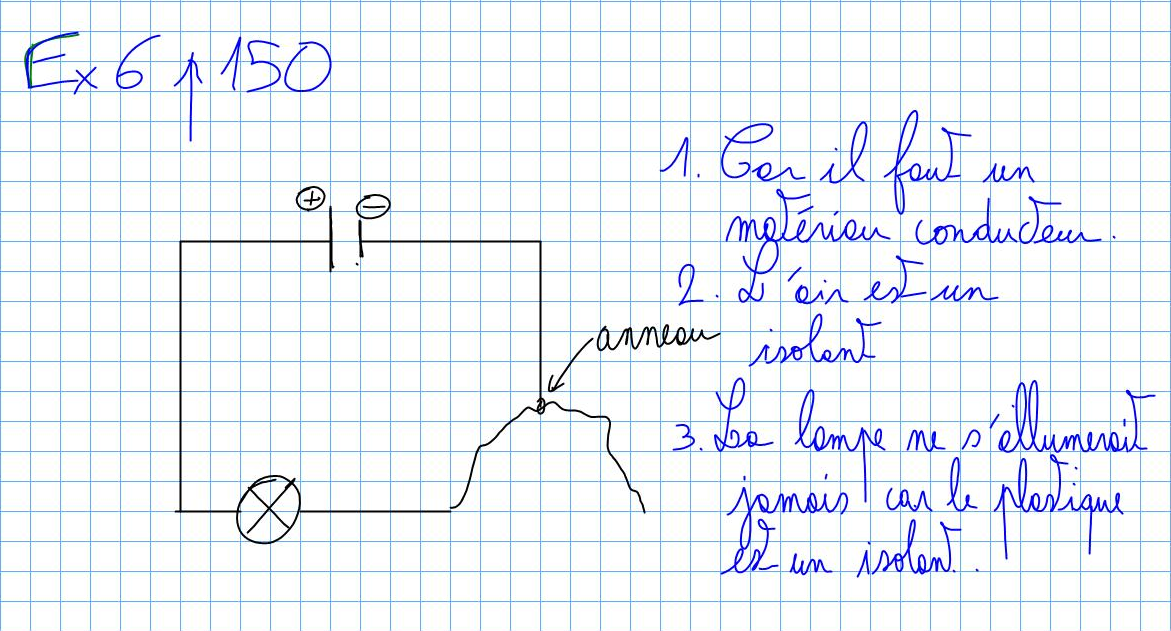 Ex 6 p 150
+ −
anneau
1. Car il faut un
matériau conducteur.
2. L'air est un
isolant
3. La lampe ne s'allumerait
jamais car le plastique
est un isolant.